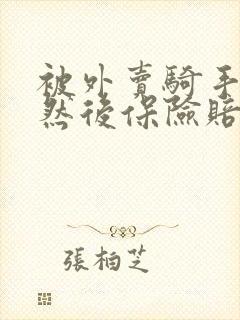 被外賣騎手
然後保險賠
張柏芝